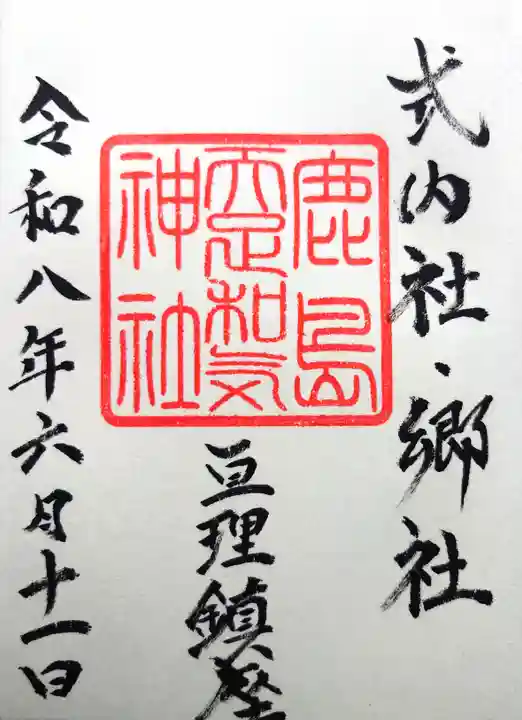 式内社・郷社
鹿島
天足和気
神社
亘理鎮座
令和八年六月十一日